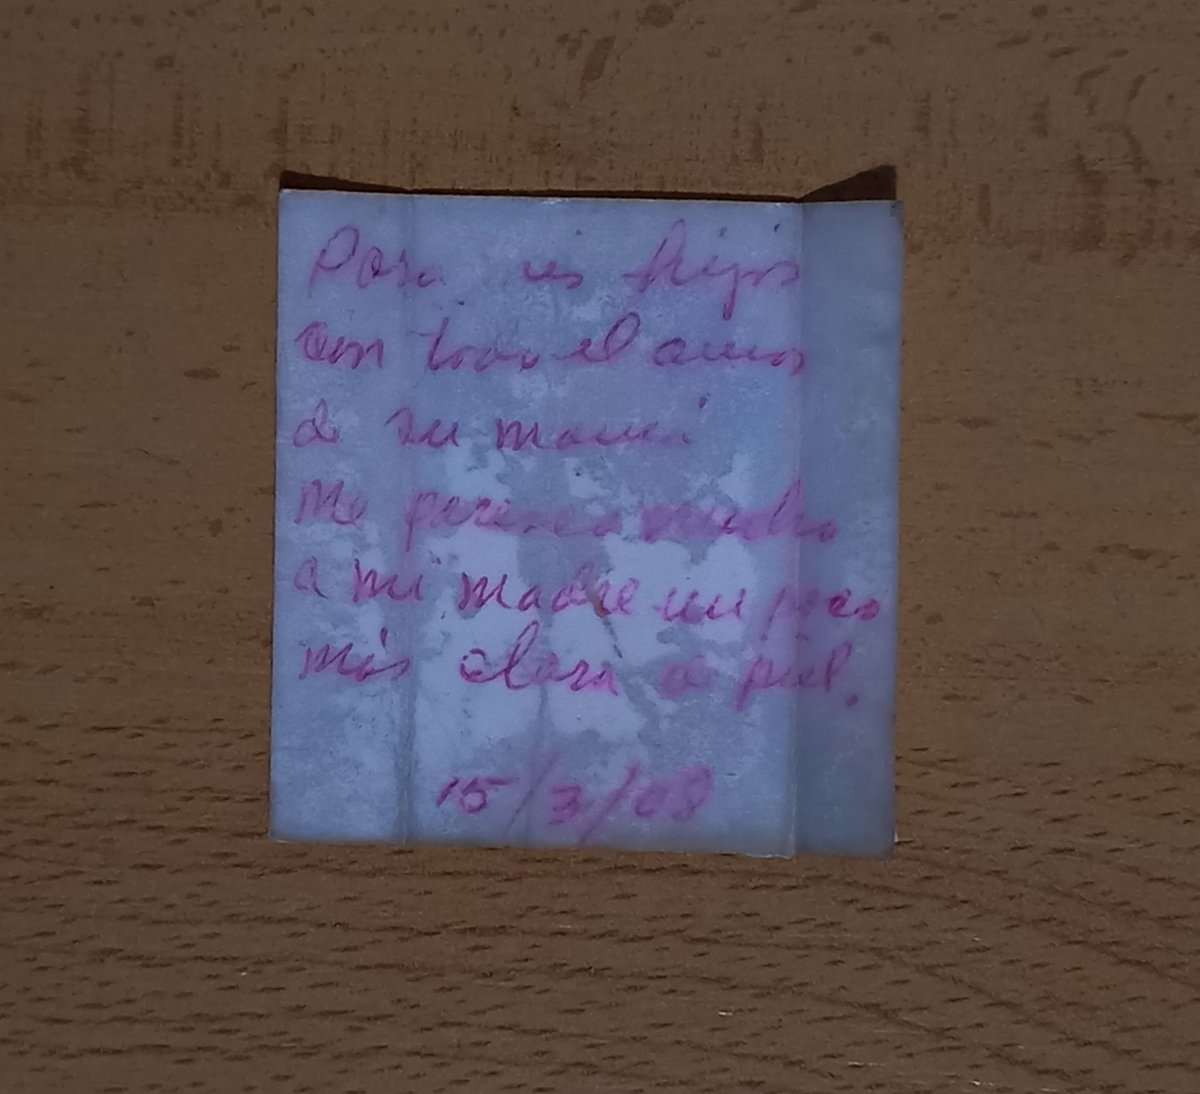 Para mis hijos
con todo el amor
de su mamá
Me parezco mucho
a mi madre un poco
más clara de piel.
15/3/08